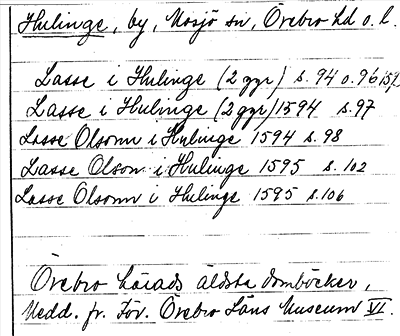 Hulinge, by, Mosjö sn, Örebro hd o. l.
Lasse i Hulinge (2 ggr) s. 94 o. 96
Lasse i Hulinge (2 ggr) 1594 s. 97
Lasse Olsonn i Hulinge 1594 s. 98
Lasse Olson i Hulinge 1595 s. 102
Lasse Olsonn i Hulinge 1595 s. 106
Örebro härads äldsta domböcker,
Medd. fr. För. Örebro Läns Museum VI.